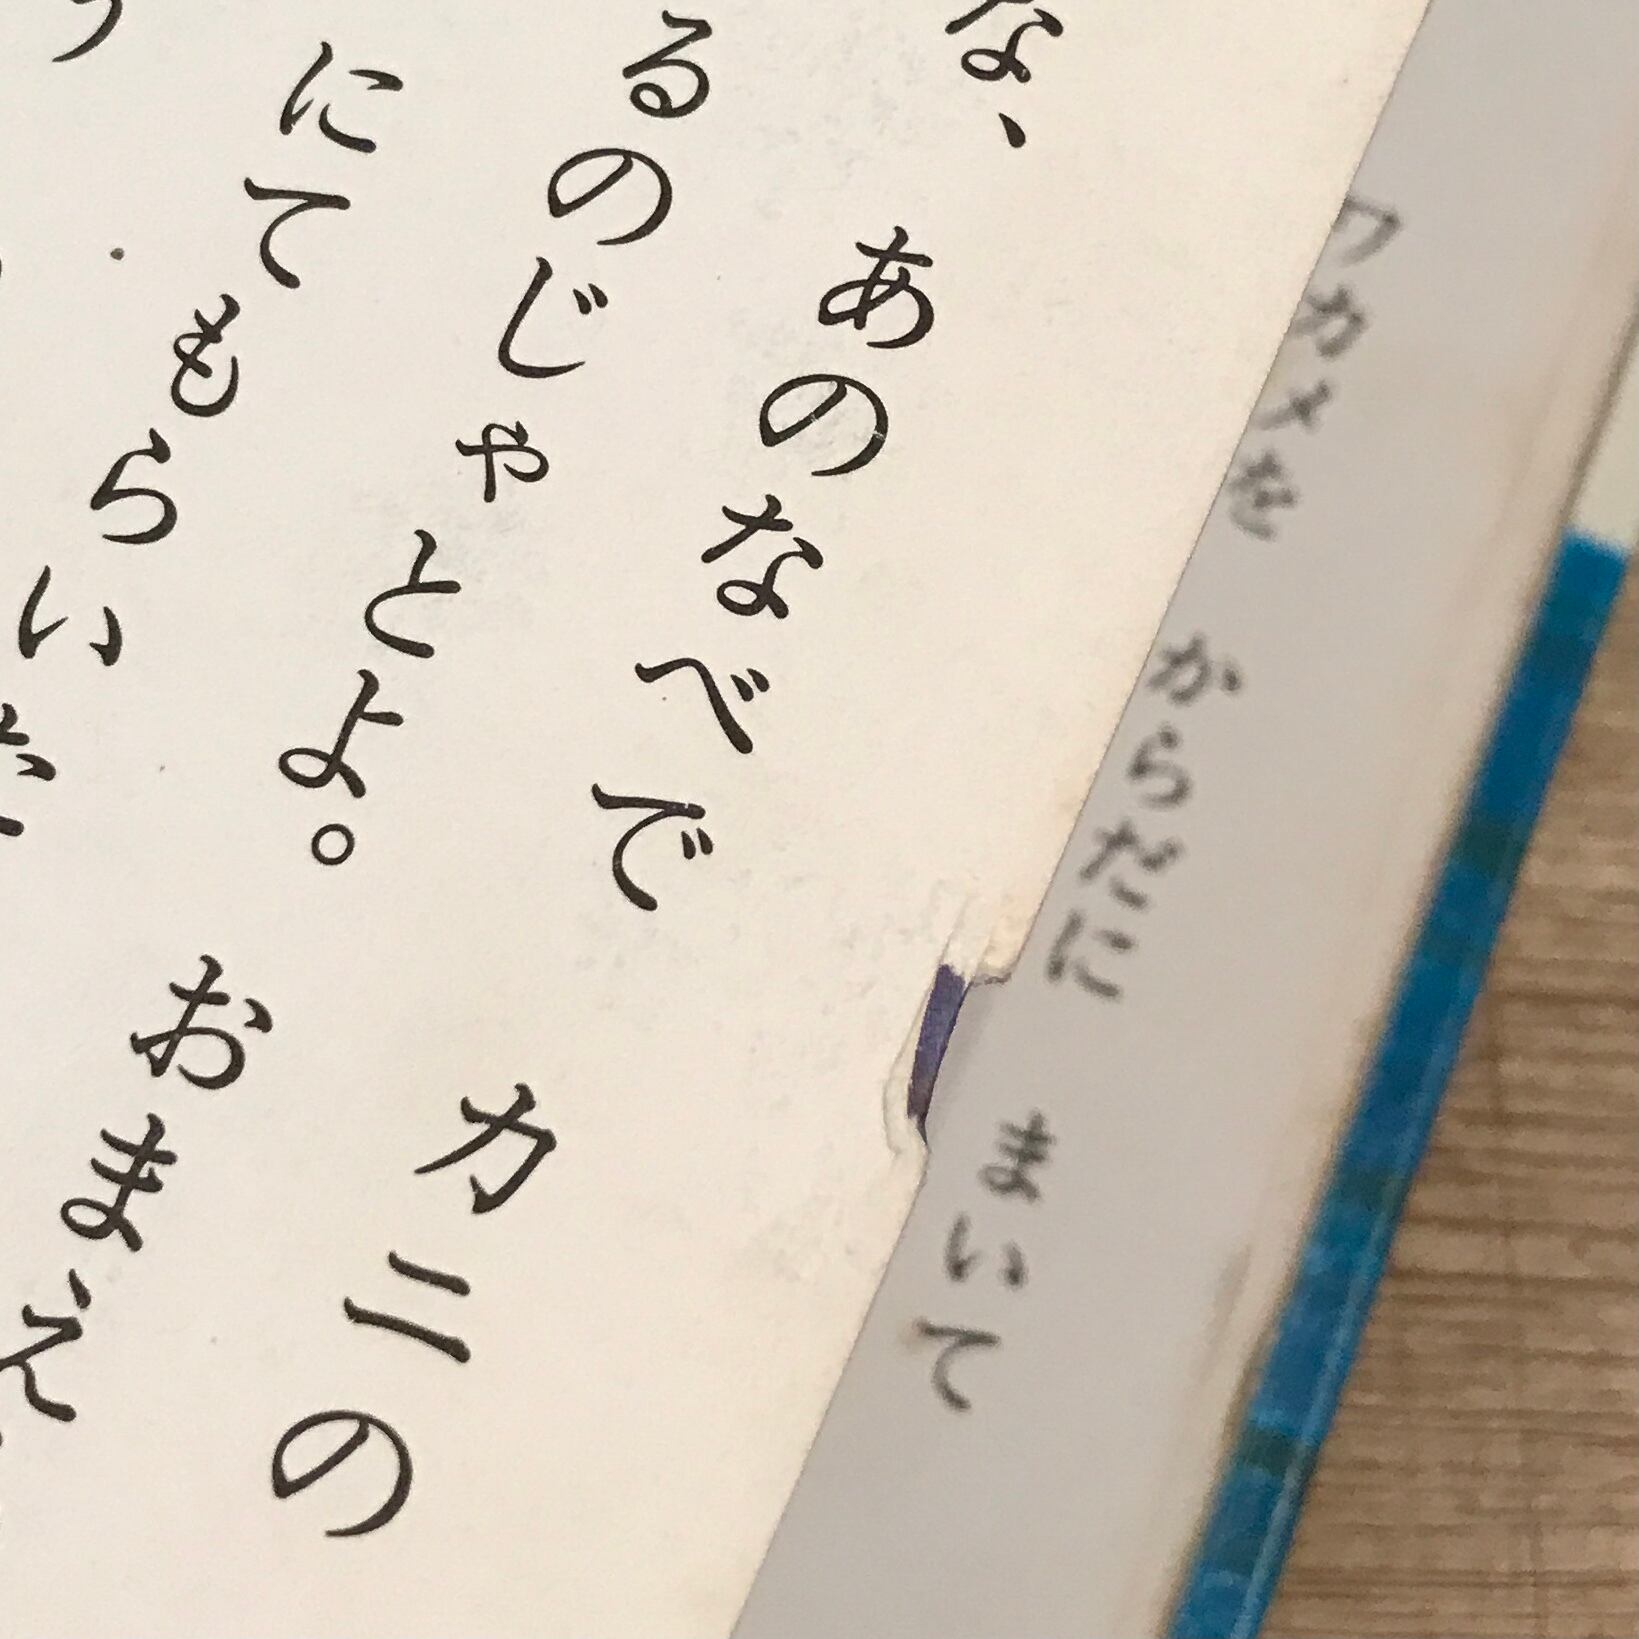 ワカメを からだに まいて
な、 あのなべで カニの
るのじゃとよ。 おまえ
にてもらい